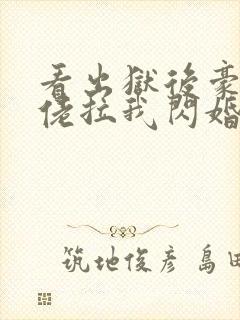 看出獄後豪
佬拉我閃婚
筑地俊彥 島田